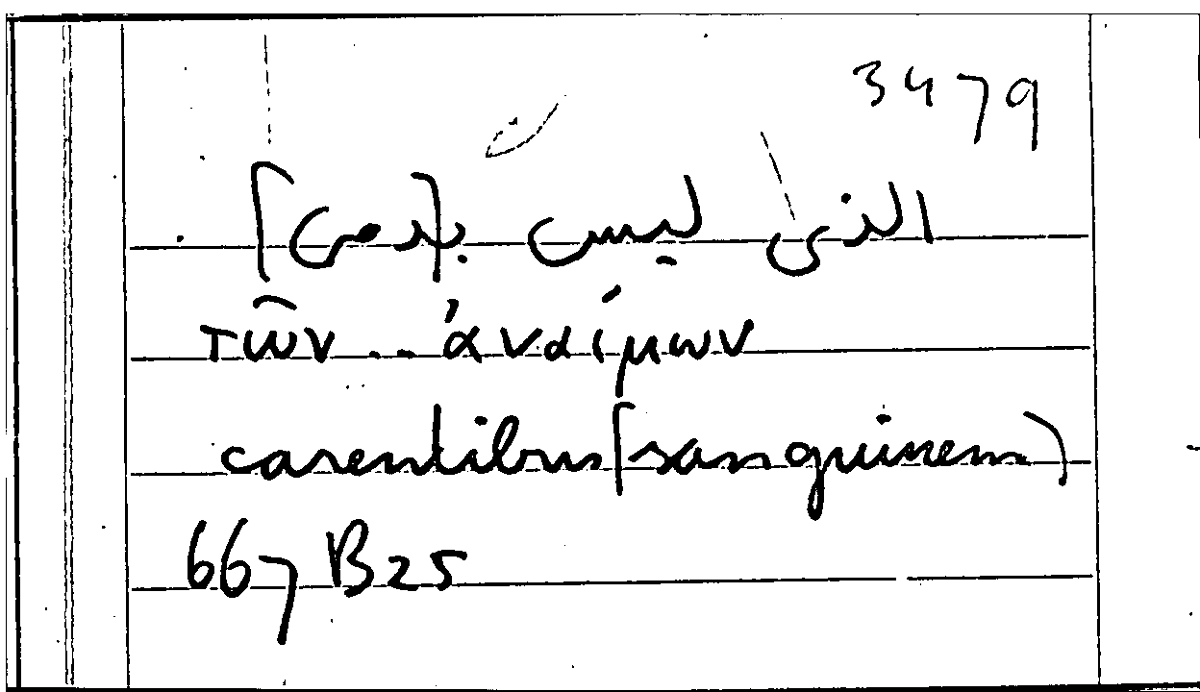 3479
الذى ليس بـ[ـدمى]
τῶν .. ἀναίμων
carentibus [sanguinem)
667 B 25